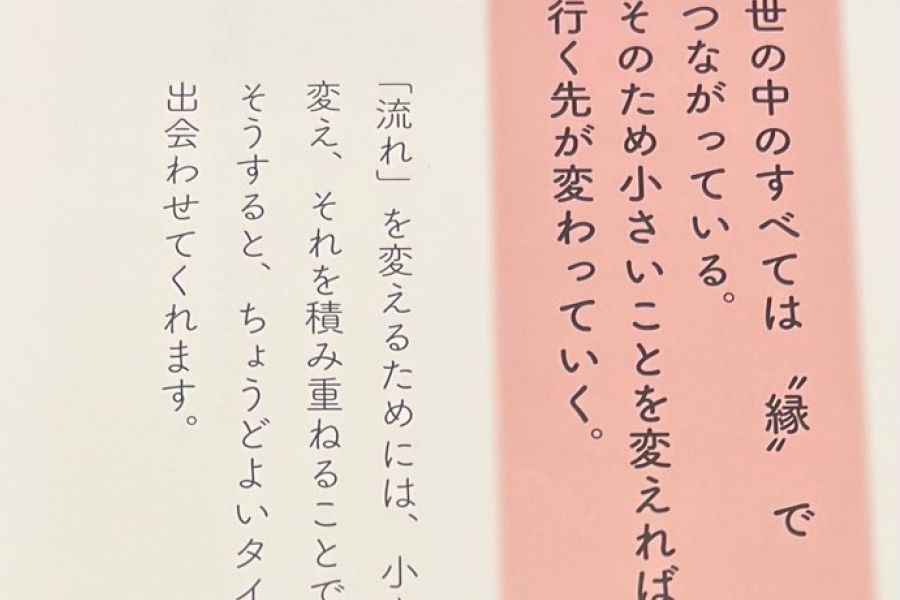 世の中のすべては〝縁〟で
つながっている。
そのため小さいことを変えれば
行く先が変わっていく。
「流れ」を変えるためには、小
変え、それを積み重ねることで
そうすると、ちょうどよいタイ
出会わせてくれます。